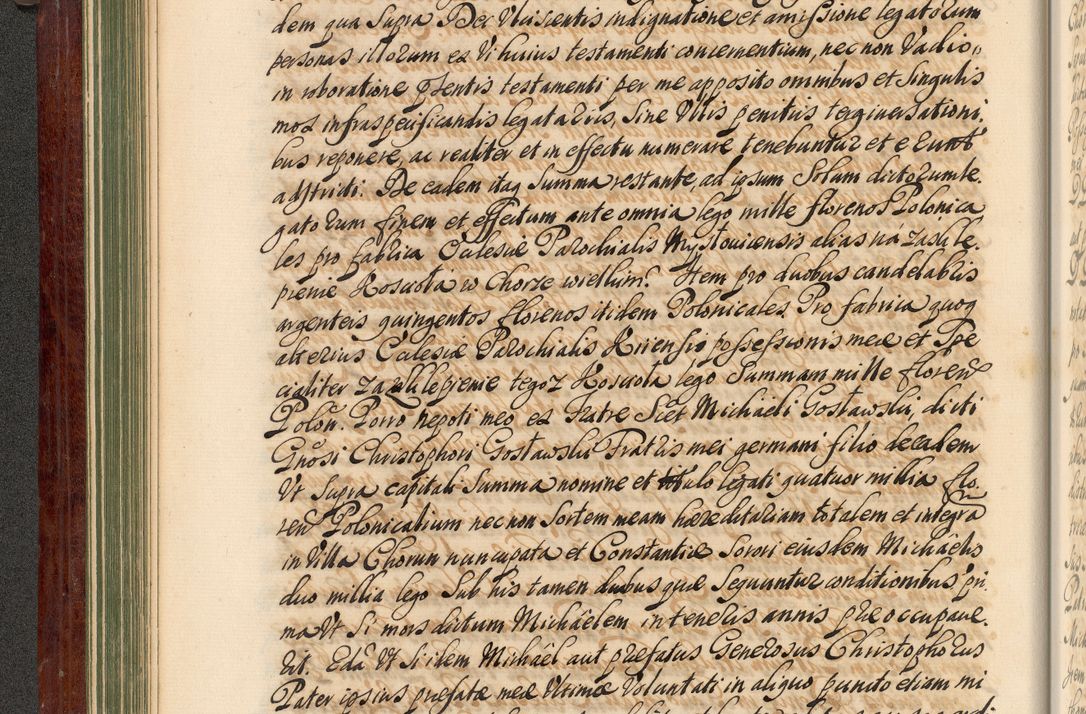 dem qua Supra Dei Ulciscentis indignatione et amissione legatorum
personas illorum ex Vi huius testamenti concernentium, nec non Vadio„
in roboratione pñsentis testamenti per me apposito omnibus et Singulis
mox infraspecificandis legatariis, Sine Ullis penitus tergiversationi„
bus reponere, ac realiter et in effectu numerare tenebuntur et e
adstricti. De eadem itaq Summa restante, ad ipsum Solum dictorum le„
gatorum finem et effectum ante omnia lego mille florenos Polonica„
les pro fabrica Ecclesiæ Parochialis Mystovicensis alias na zaskle„
pienie Koscioła w Chorze wielkim. Item pro duobus candelabris
argenteis quingentos florenos itidem Polonicales Pro fabrica quoq
alterius Ecclesiæ Parochialis possessionis meæ et Spe„
cialiter zasklepienie tegoz Koscioła lego Summam mille floren
Polon. Porro nepoti meo ex Fratre Scilet Michaeli Gosławski, dicti
Gnosi Christophori Gosławski Fratris mei germani filio de eadem
Ut Supra capitali Summa nomine et titulo legati quatuor millia flo„
ren Polonicalium nec non Sortem meam hæreditariam totalem et integra
in Villa Chorun nuncupata et Constantiæ Sorori eiusdem Michaelis
duo millia lego Sub his tamen duabus quæ Sequuntur conditionibus, pri„
ma Ut Si mors dictum Michaelem in teneris annis præoccupave„
rit. Eda Ut Si idem Michael aut præfatus Generosus Christophorus
Pater ipsius præfatæ meæ Ultimæ Voluntati in aliquo puncto etiam mi